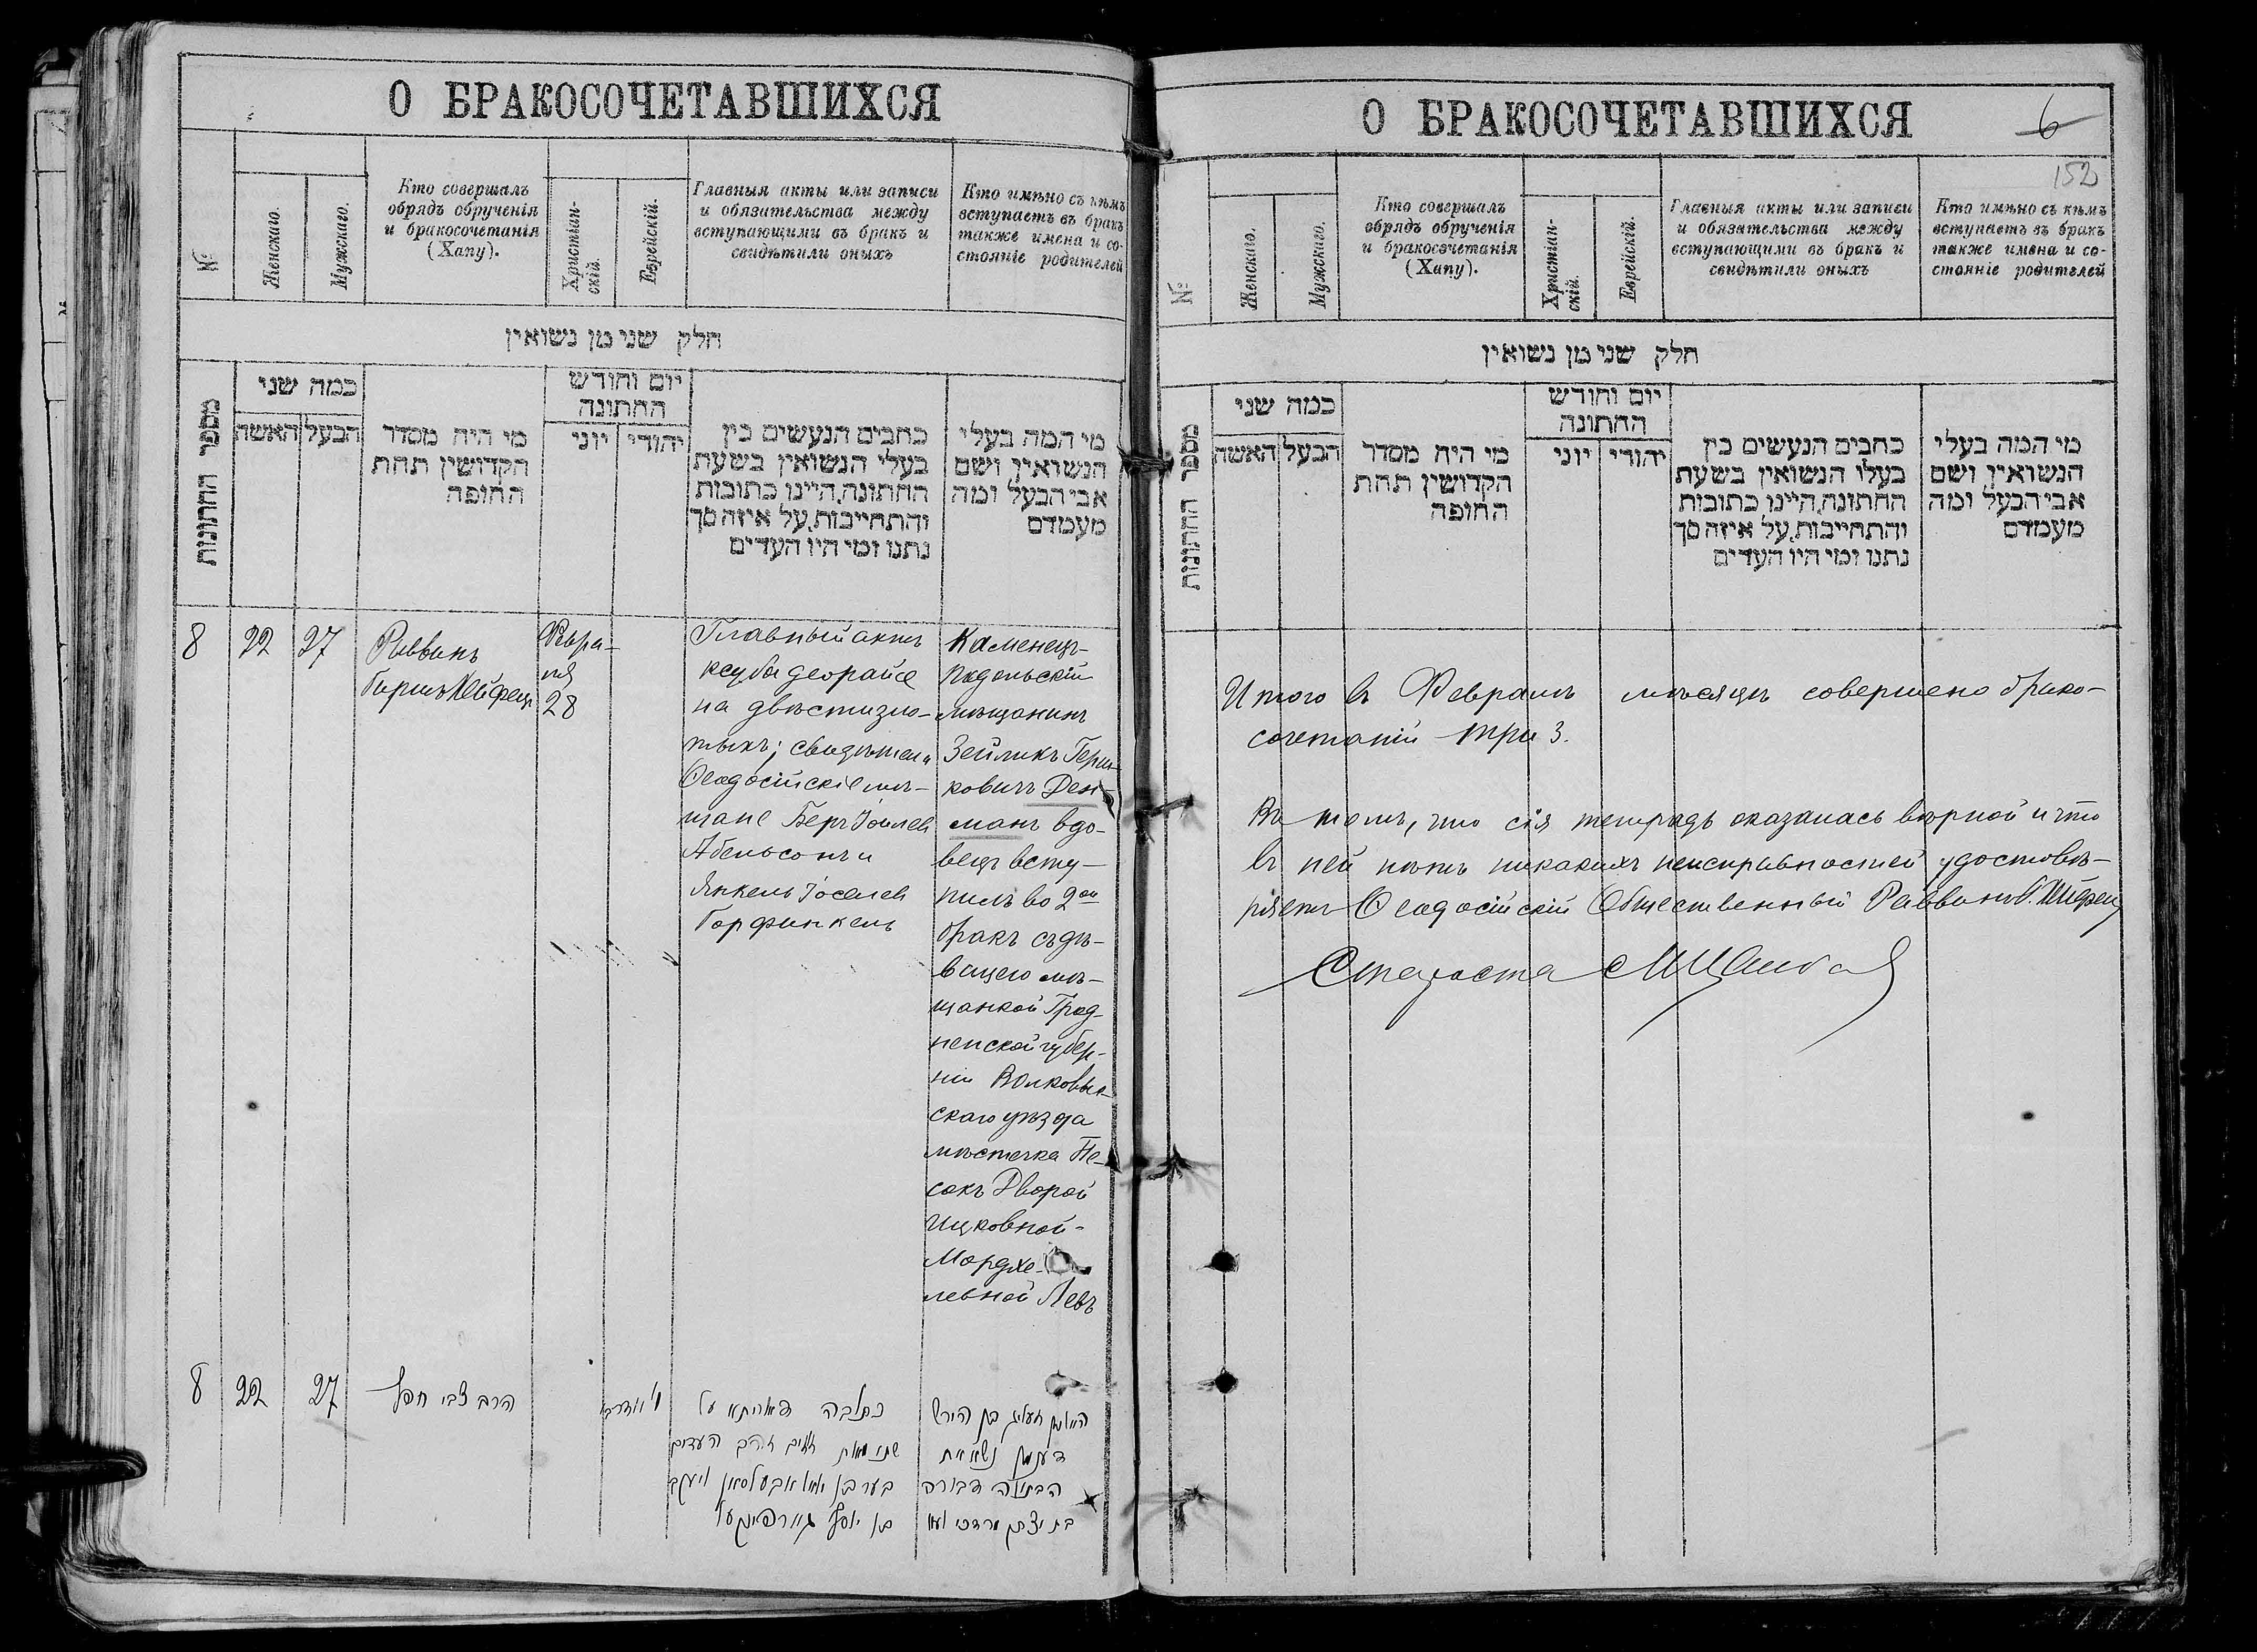 О БРАКОСОЧЕТАВШИХСЯ
№
Женскаго.
Мужскаго.
Кто совершалъ
обрядъ обрученія
и бракосочетанія
(Хапу).
Христіан-
скій.
Еврейскій.
Главныя акты или записи
и обязательства между
вступающими въ бракъ и
свидѣтили оныхъ
Кто имѣно съ кѣмъ
вступаетъ въ бракъ
также имена и со-
стояніе родителей
חלק שני מן נשואין
מספר החתונות
כמה שני
האשה
הבעל
מי היה מסדר
הקדושין תחת
החופה
יום וחודש
החתונה
יוני
יהודי
כתבים הנעשים בין
בעלי הנשואין בשעת
החתונה, היינו כתובות
והתחייבות, על איזה סך
נתנו ומי היו העדים
מי המה בעלי
הנשואין ושם
אבי הבעל ומה
מעמדם
8
22
27
Раввинъ
Гиршъ Хейфецъ
Февра-
ля
28
Главный актъ
ксуба деорайсе
на двѣсти зло-
тыхъ; свидѣтели
Ѳеодосійскіе мѣ-
щане Беръ Іоилев
Абельсонъ и
Янкель Іоселев
Горфинкель
Каменецъ-
Подольскій
мѣщанинъ
Зейликъ Герш-
ковичъ Ден-
манъ вдо-
вецъ всту-
пилъ во 2ой
бракъ съ дѣ-
вицею мѣ-
щанкой Грод-
ненской губер-
ніи Волковы-
скаго уѣзда
мѣстечка Пе-
сокъ Дворой
Ицковной-
Мордхе-
левной Левъ
8
22
27
הרב צבי חפץ
כתובה דאוריתא על
שתי מאות זוזים והעדים
בער בן יואל אבעלסאן ויעקב
בן יוסף גורפינקעל
זעליג בן הירש
דענמן נשא את
הבתולה דבורה
בת יצחק מרדכי לעוו
О БРАКОСОЧЕТАВШИХСЯ
6
152
№
Женскаго.
Мужскаго.
Кто совершалъ
обрядъ обрученія
и бракосочетанія
(Хапу).
Христіан-
скій.
Еврейскій.
Главныя акты или записи
и обязательства между
вступающими въ бракъ и
свидѣтили оныхъ
Кто имѣно съ кѣмъ
вступаетъ въ бракъ
также имена и со-
стояніе родителей
חלק שני מן נשואין
מספר החתונות
כמה שני
האשה
הבעל
מי היה מסדר
הקדושין תחת
החופה
יום וחודש
החתונה
יוני
יהודי
כתבים הנעשים בין
בעלו הנשואין בשעת
החתונה, היינו כתובות
והתחייבות, על איזה סך
נתנו ומי היו העדים
מי המה בעלי
הנשואין ושם
אבי הבעל ומה
מעמדם
Итого въ Февралѣ мѣсяцѣ совершено брако-
сочетаній три 3.
Въ томъ, что сія тетрадь оказалась вѣрной и что
въ ней нѣтъ никакихъ неисправностей удостовѣ-
ряетъ Ѳеодосійскій Общественный Раввинъ Г. Хейфецъ
Староста